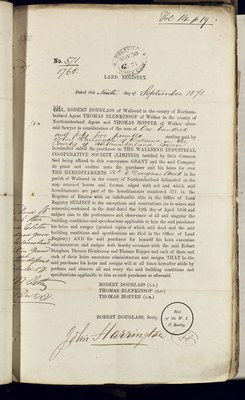 Vol. 14. p 19.
No. 571
1768.
LAND REGISTRY.
Dated this Ninth day of September 1871
ROBERT DOUGLASS of Wallsend in the county of Northum-
berland Agent THOMAS BLENKINSOP of Walker in the county of
Northumberland Agent and THOMAS HOPPER of Walker afore-
said Sawyer in consideration of the sum of One hundred
and fifty five pounds paid by
John Harrington of Wallsend in the
County of Northumberland
(hereinafter called the purchaser to THE WALLSEND INDUSTRIAL
CO-OPERATIVE SOCIETY (LIMITED) testified by their Common
Seal being affixed to this conveyance GRANT and the said Company
do grant and confirm unto the purchaser and his heirs ALL
THE HEREDITAMENTS Douglass Street in the
parish of Wallsend in the county of Northumberland delineated on the
map annexed hereto and thereon edged with red and which said
hereditaments are part of the hereditaments numbered 571 in the
Register of Estates with an indefeasible title in the Office of Land
Registry SUBJECT to the exceptions and reservations (as to mines and
minerals) contained in the deed dated the 12th day of April 1859 and
subject also to the performance and observance of all and singular the
building conditions and specifications applicable to him the said purchaser
and his heirs and assigns (printed copies of which said deed and the
said conditions and specifications are filed in the Office of Land
Registry) AND the said purchaser for himself his heirs executors
administrators and assigns doth hereby covenant with the said Robert
Douglass, Thomas Blenkinsop and Thomas Hopper and each of them and
each of their heirs executors administrators and assigns THAT he the
said purchaser his heirs and assigns will at all times hereafter abide by
perform and observe all and every the said building conditions and
specifications applicable to him as such purchaser as aforesaid.
ROBERT DOUGLASS (L.S.)
THOMAS BLENKINSOP (L.S.)
THOMAS HOPPER (L.S.)
ROBERT DOUGLASS, Secty.
Seal
of the W. I.
C. Society.
John Harrington